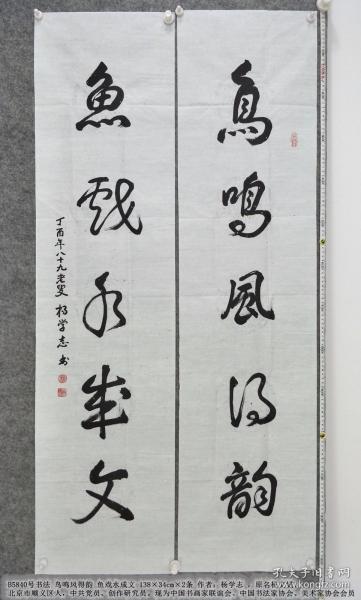 鳥鳴風得韻
魚戲水成文
丁酉年八十九老叟 楊学志书
B5840号书法 鸟鸣风得韵 鱼戏水成文 138×34cm×2条 作者：杨学志，原名杞文斌
北京市顺义区人，中共党员，创作研究员，现为中国书画家联谊会、中国书法家协会、美术家协会会员
孔夫子旧书网